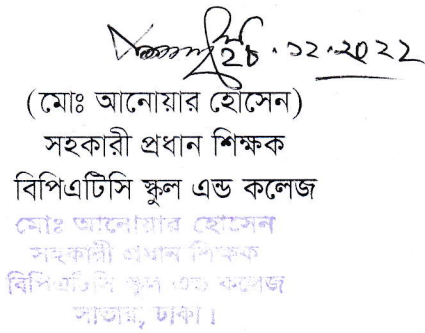 ২৮.১২.২০২২
(মোঃ আনোয়ার হোসেন)
সহকারী প্রধান শিক্ষক
বিপিএটিসি স্কুল এন্ড কলেজ
মোঃ আনোয়ার হোসেন
সহকারী প্রধান শিক্ষক
বিপিএটিসি স্কুল এন্ড কলেজ
সাভার, ঢাকা।